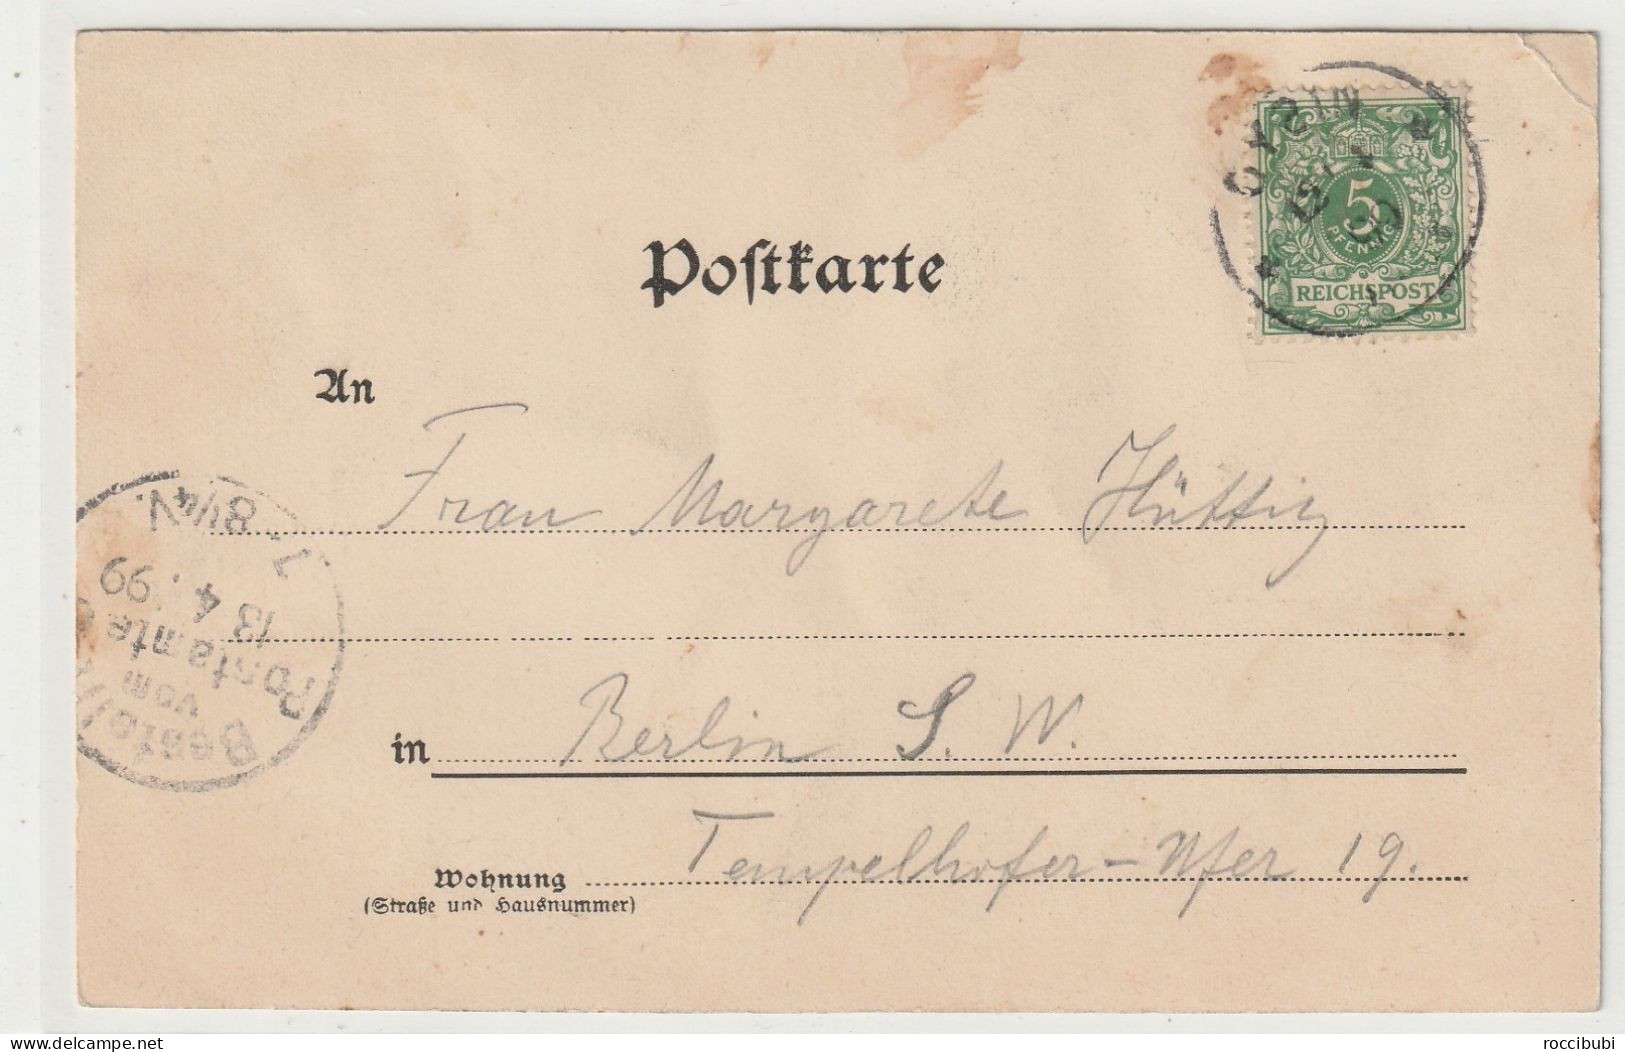 Postkarte
5
PFENNIG
REICHSPOST
OYBIN
An
Frau Margarete Hüttig
Bestellt
vom
Postamte
13 4. 99
8 1/4 V.
in Berlin S. W.
Wohnung Tempelhofer-Ufer 19.
(Straße und Hausnummer)
roccibubi
delcampe.net